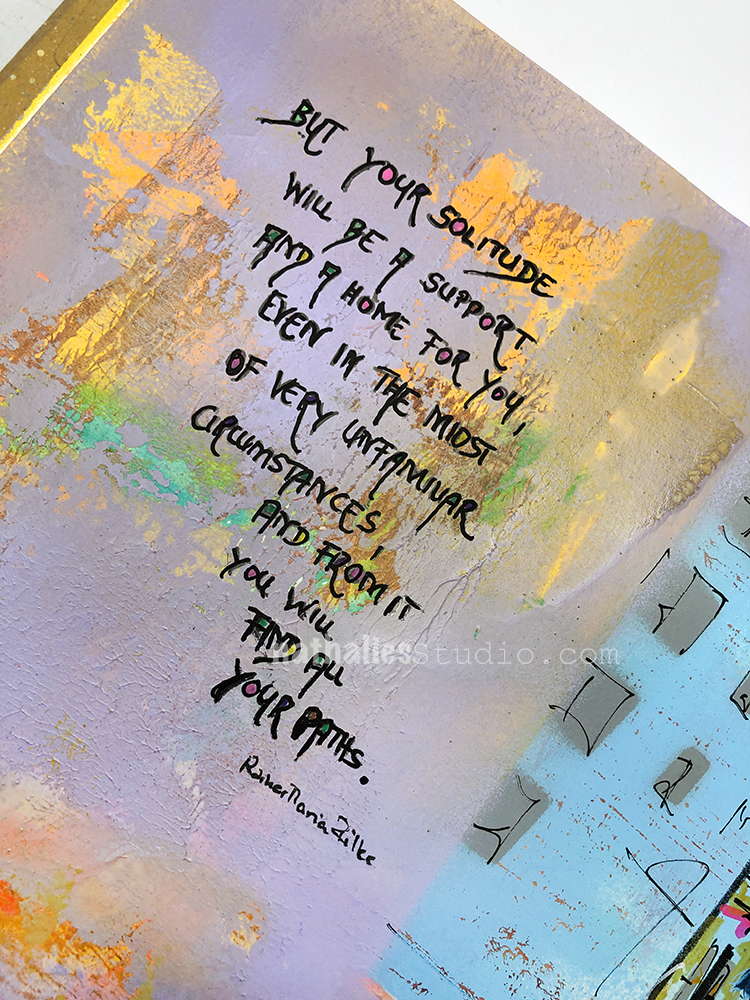 BUT YOUR SOLITUDE
WILL BE A SUPPORT
AND A HOME FOR YOU,
EVEN IN THE MIDST
OF VERY UNFAMILIAR
CIRCUMSTANCES,
AND FROM IT
YOU WILL
FIND ALL
YOUR PATHS.
Rainer Maria Rilke
NathaliesStudio.com